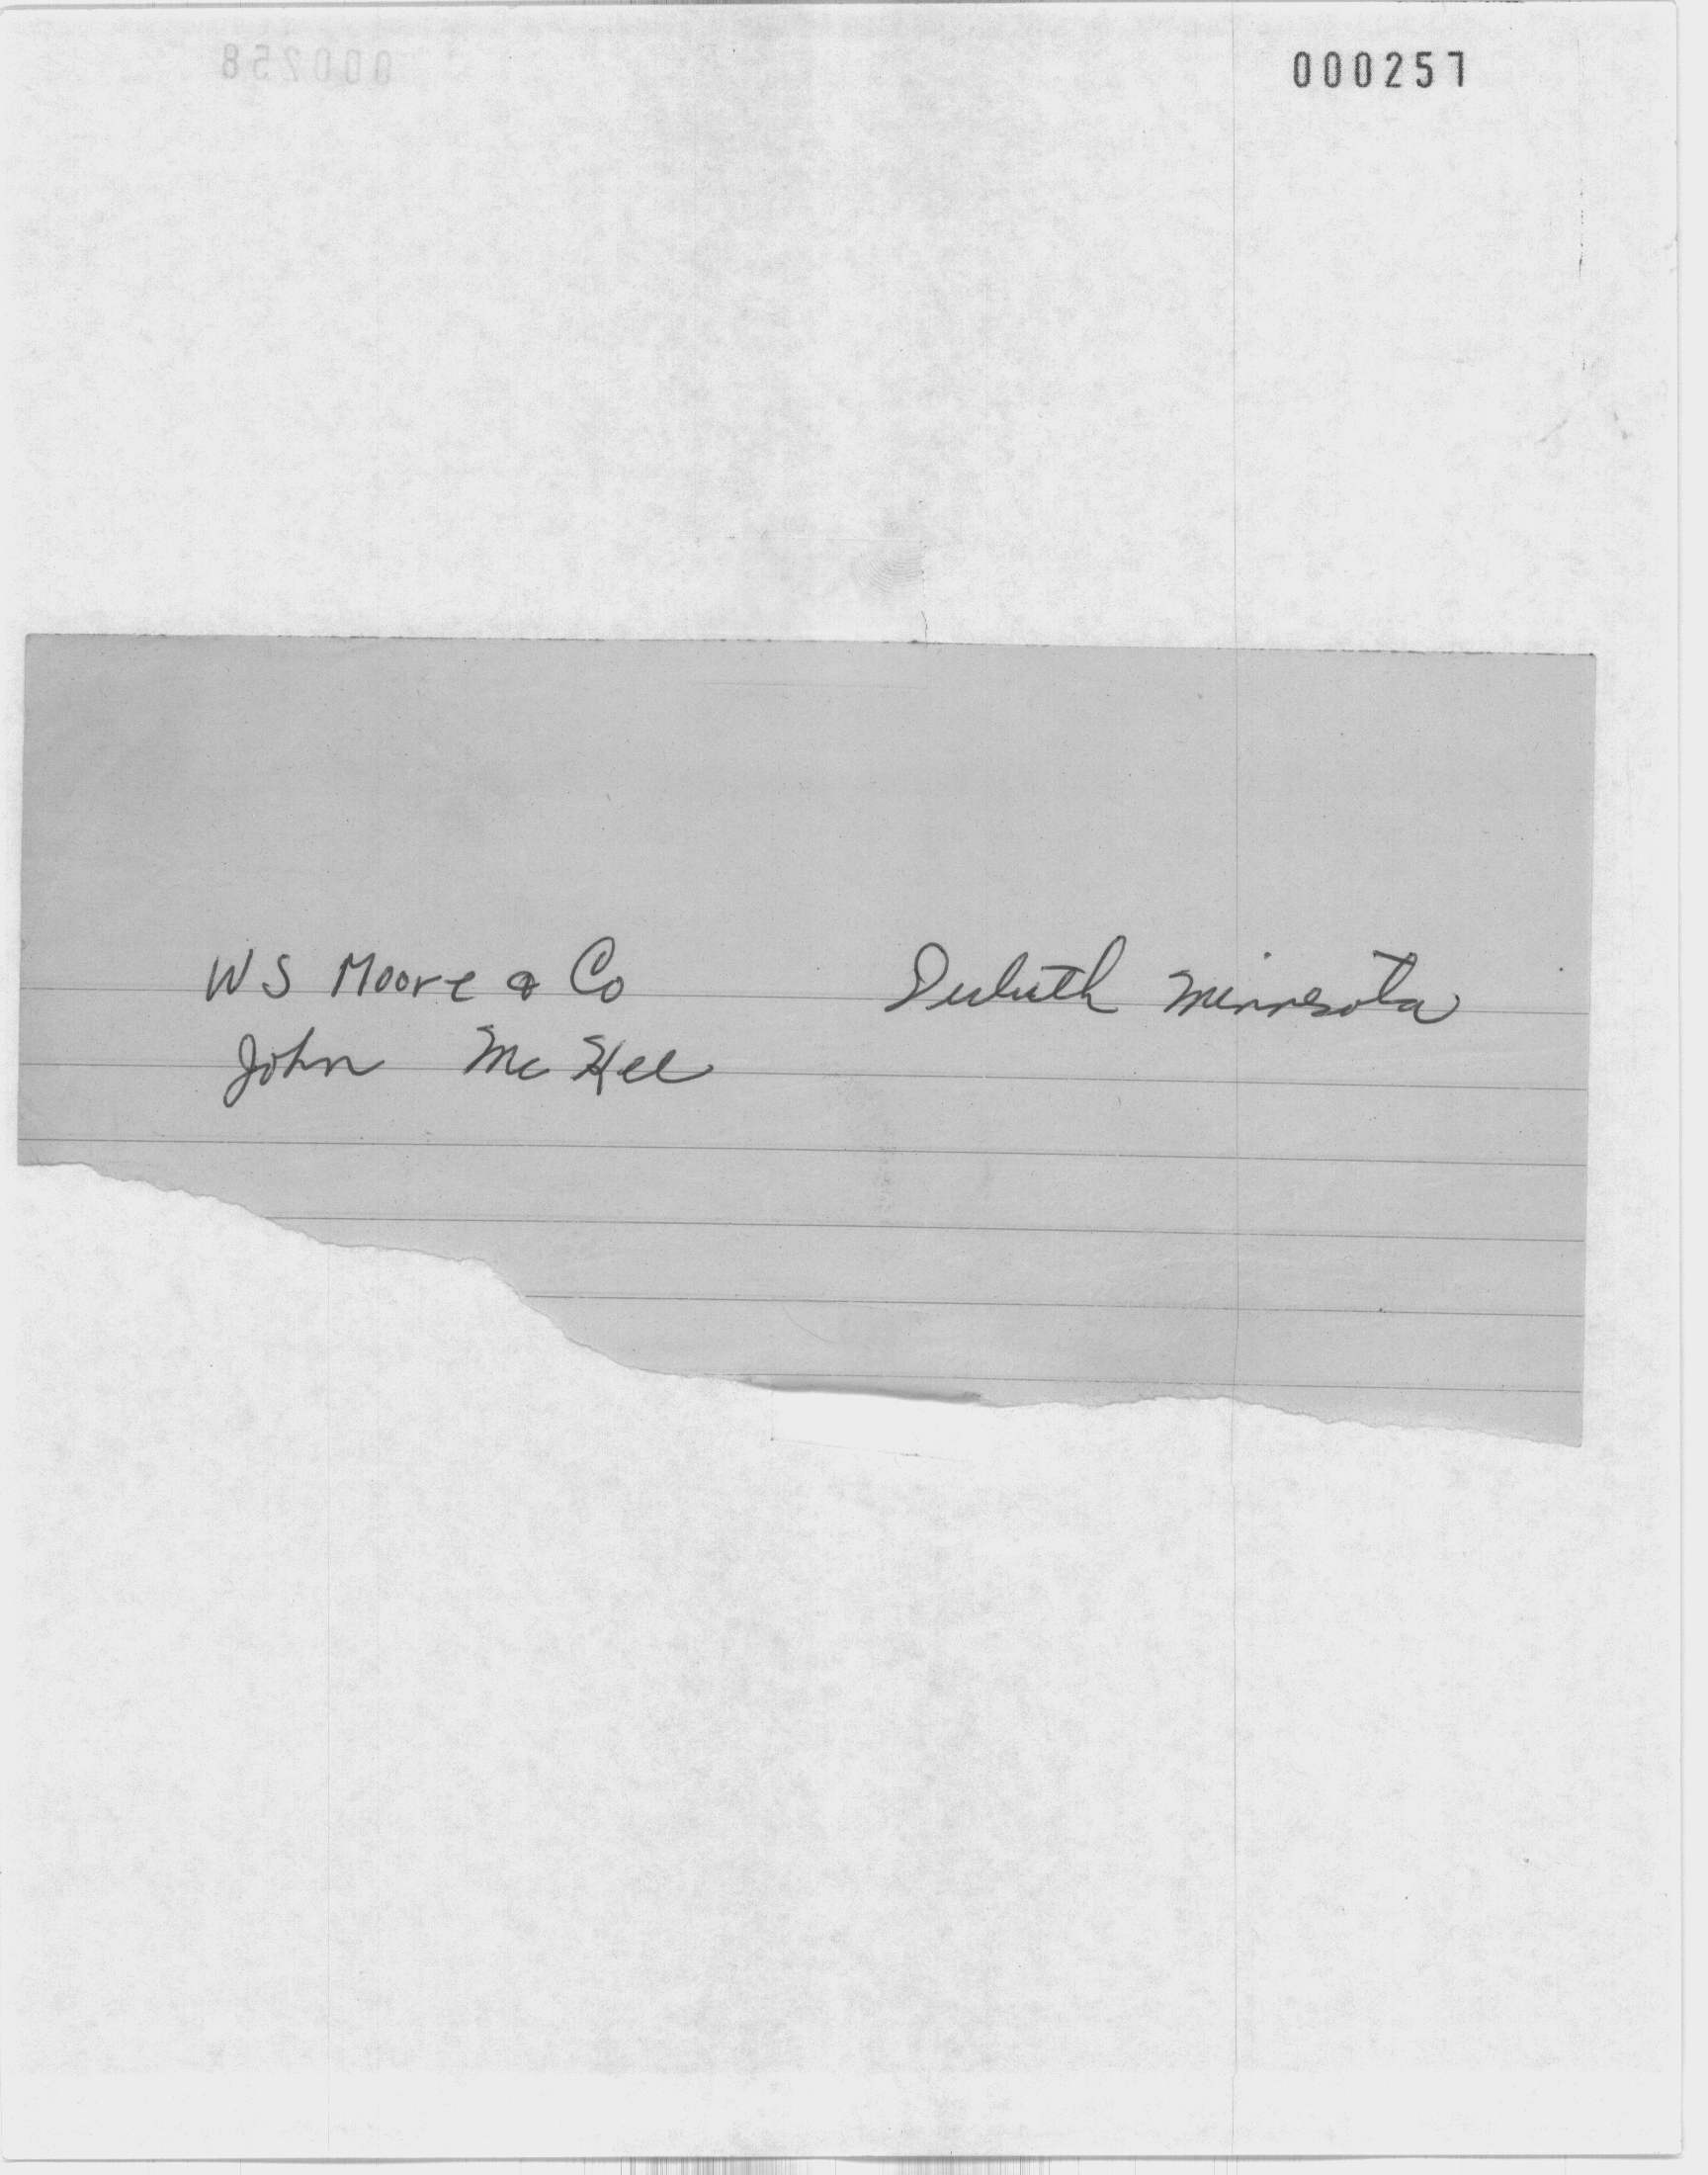 000257
WS Moore & Co Duluth Minnesota
John Mc Kee